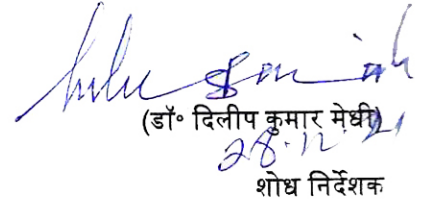 (डॉ॰ दिलीप कुमार मेधी)
28.12.21
शोध निर्देशक